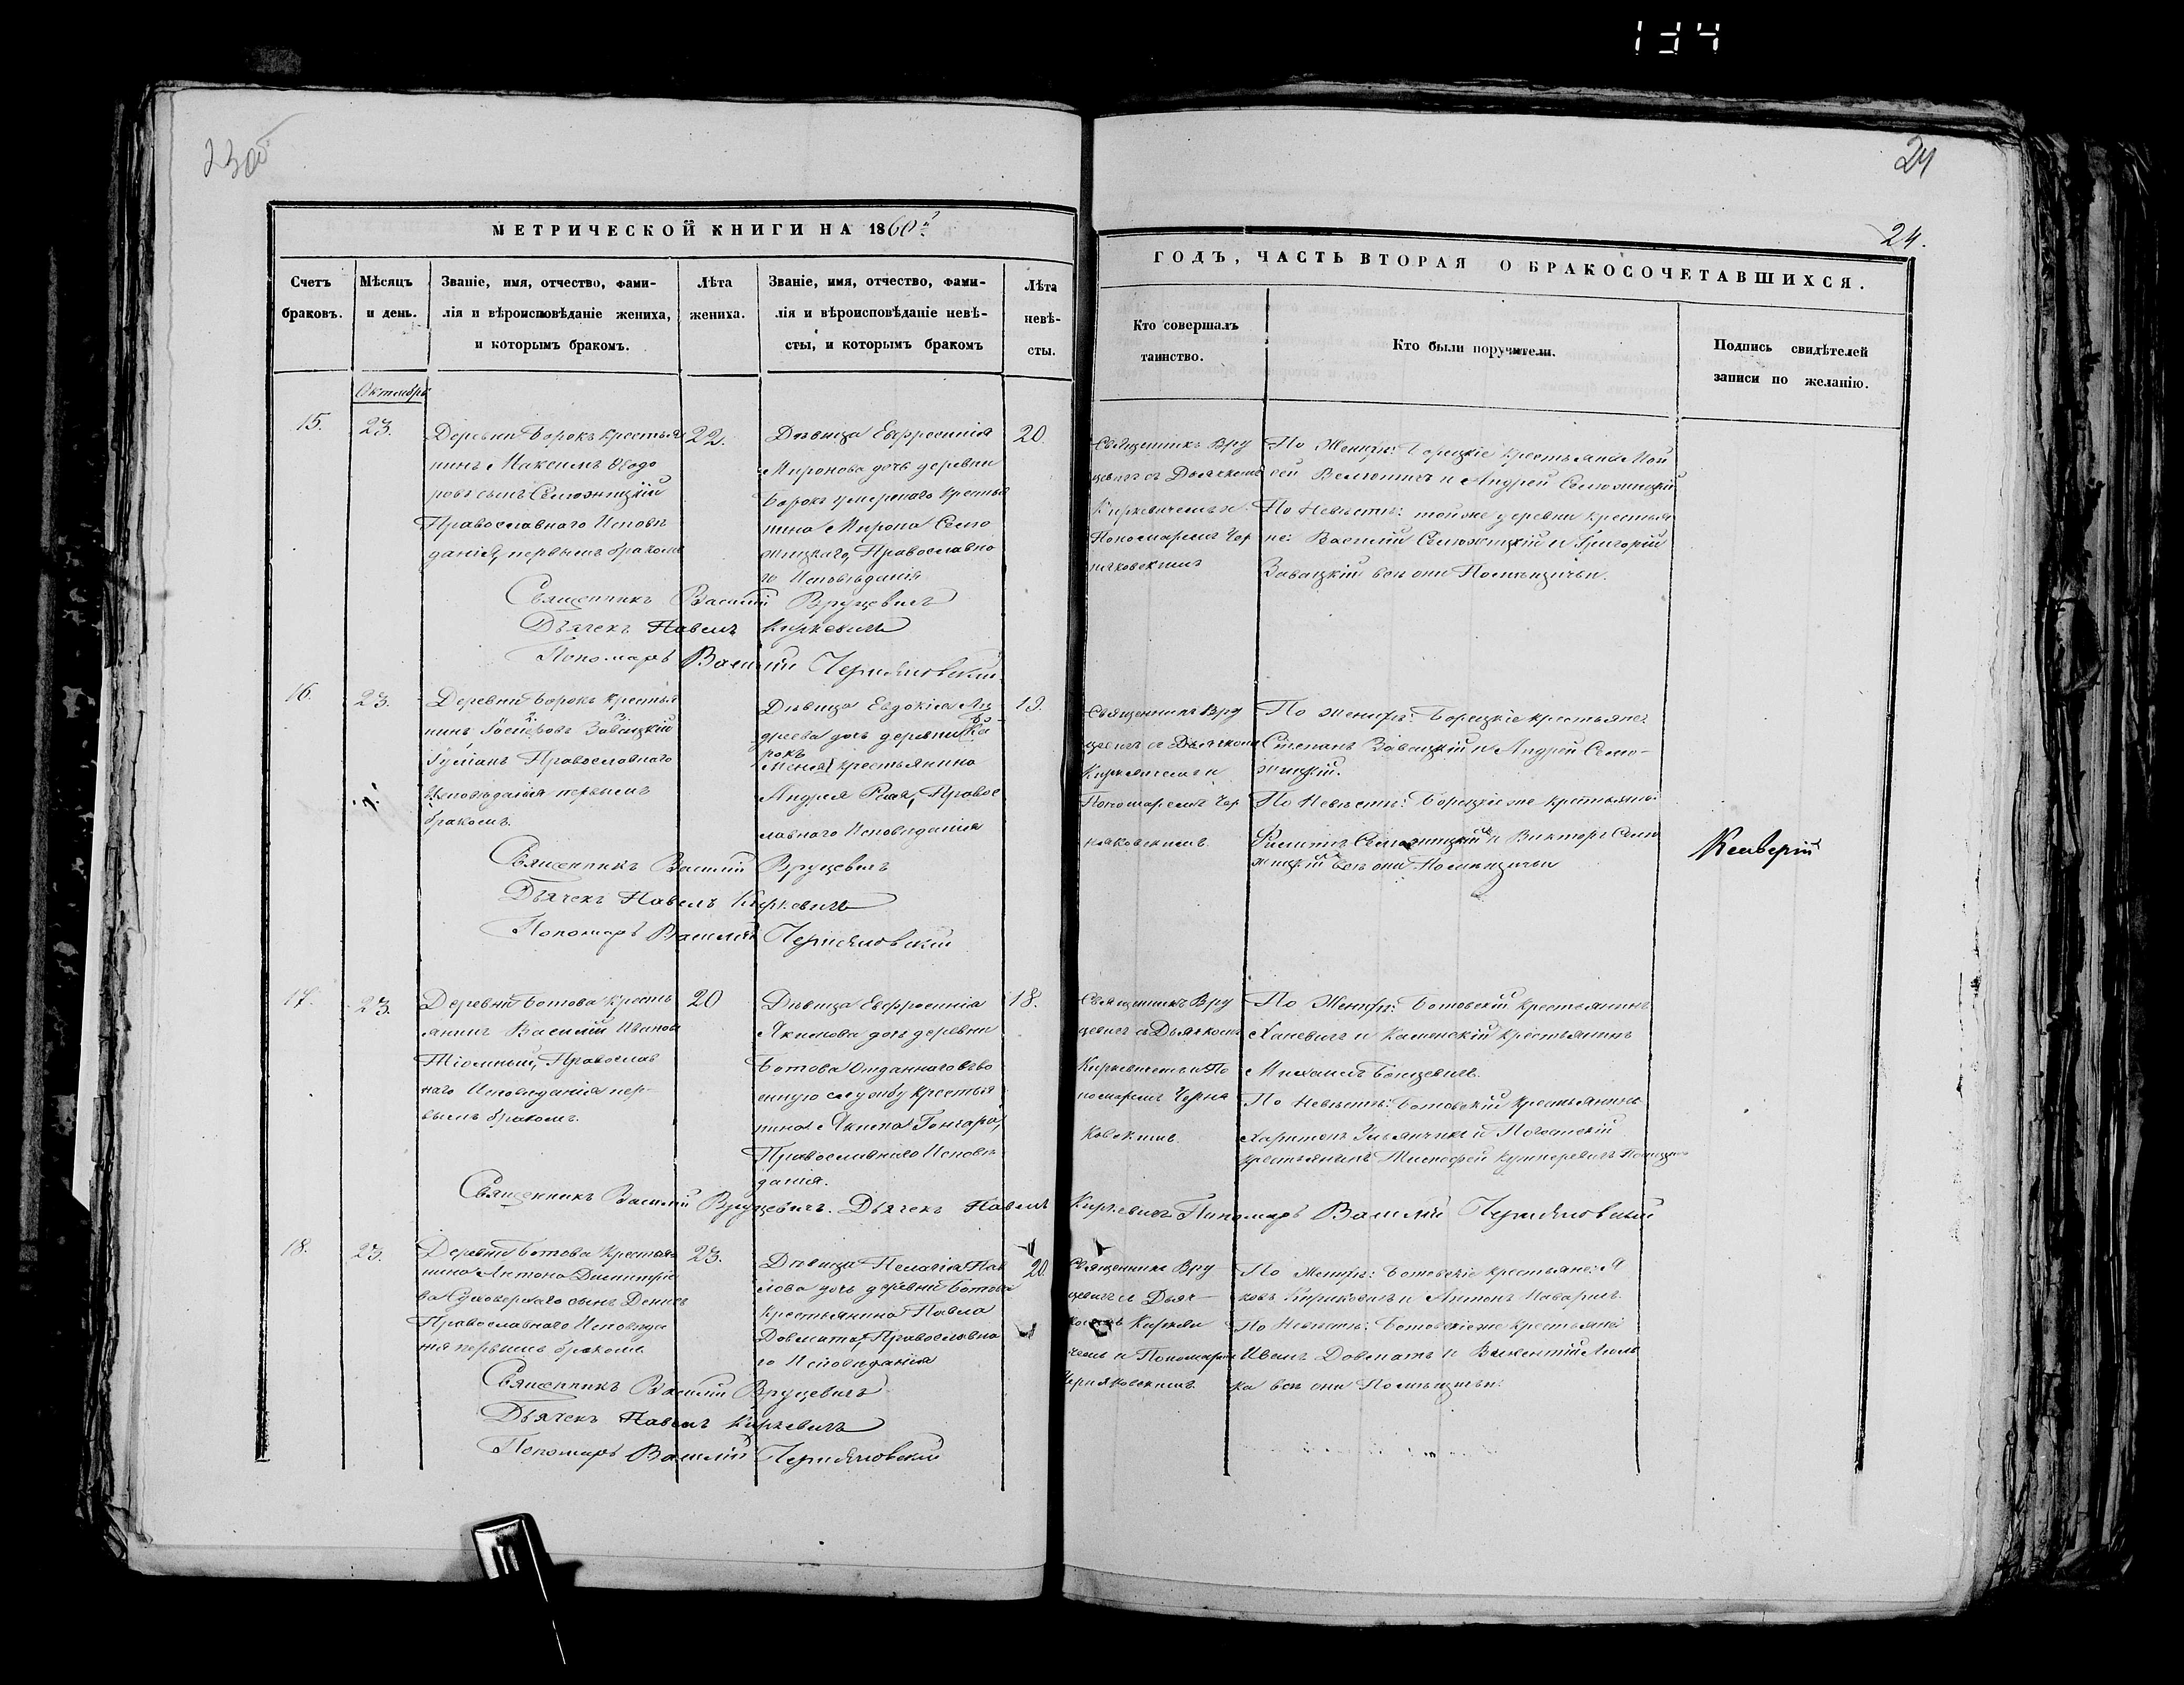 134
23об
24
24.
МЕТРИЧЕСКОЙ КНИГИ НА 1860й
Счетъ браковъ.
Мѣсяцъ и день.
Званіе, имя, отчество, фами-
лія и вѣроисповѣданіе жениха,
и которымъ бракомъ.
Лѣта жениха.
Званіе, имя, отчество, фами-
лія и вѣроисповѣданіе невѣ-
сты, и которымъ бракомъ
Лѣта невѣ-
сты.
ГОДЪ, ЧАСТЬ ВТОРАЯ О БРАКОСОЧЕТАВШИХСЯ.
Кто совершалъ
таинство.
Кто были поручители.
Подпись свидѣтелей
записи по желанію.
Октябрь
15.
23.
Деревни Борокъ крестья
нинъ Максимъ Ѳеодо
ровъ сынъ
Православнаго Исповѣ
данія, первымъ бракомъ
22.
Дѣвица Евфросинія
Миронова дочь деревни
Борокъ умершаго крестья
нина Мирона Семю
жицкаго, Православна
го Исповѣданія
20.
Священникъ Вру
цевичъ съ Дьячкомъ
Киркевичемъ и
Пономаремъ Чер
няковскимъ
По Женихѣ: Борецкіе крестьяне Мои
сей и Андрей
По Невѣстѣ: той же деревни крестья
не: Василій и Григорій
Завацкій всѣ они Помѣщичьи.
Священникъ Василій Вруцевичъ
Дьячекъ Павелъ Киркевичъ
Пономарь Василій Черняковскій
16.
23.
Деревни Борокъ крестья
нинъ Завацкій
Православнаго
Исповѣданія первымъ
бракомъ.
Дѣвица Евдокія Ан
дреева дочь деревни
крестьянина
Андрея Правос
лавнаго Исповѣданія
19.
Священникъ Вру
цевичъ съ Дьячкомъ
Киркевичемъ и
Пономаремъ Чер
няковскимъ.
По женихѣ: Борецкіе крестьяне
Степанъ Завацкій и Андрей Семю-
жицкій.
По Невѣстѣ: Борецкіе же крестьяне:
и Викторъ Семю
жицкій всѣ они Помѣщичьи
Священникъ Василій Вруцевичъ
Дьячекъ Павелъ Киркевичъ
Пономарь Василій Черняковскій
17.
23.
Деревни Ботова кресть
янинъ Василій Иванов
Православ
наго Исповѣданія пер-
вымъ бракомъ.
20
Дѣвица Евфросинія
Якимова дочь деревни
Ботова отданнаго въ во
енную службу крестья
нина Якима Гончара,
Православнаго Исповѣ
данія.
18.
Священникъ Вру
цевичъ съ Дьячкомъ
Киркевичемъ и По
номаремъ Черня
ковскимъ.
По Женихѣ: Ботовскій крестьянинъ
Ханевичъ и Каменскій крестьянинъ
Михаилъ
По Невѣстѣ: Ботовскій крестьянинъ
Харитонъ и Погостскій
крестьянинъ
Священникъ Василій Вруцевичъ. Дьячекъ Павелъ Киркевичъ Пономарь Василій Черняковскій
18.
23.
Деревни Ботова крестья
нина Антона Димитріе
ва сынъ Денисъ
Православнаго Исповѣда
нія первымъ бракомъ
23.
Дѣвица Пелагія Пав
лова дочь деревни Ботова
крестьянина Павла
Довмата, Православна
го Исповѣданія
20.
Священникъ Вру-
цевичъ съ Дьяч-
комъ Киркеви
чемъ и Пономаремъ
Черняковскимъ.
По Женихѣ: Ботовскіе крестьяне: Я
ковъ и Антонъ
По Невѣстѣ: Ботовскіе же крестьяне
Иванъ Довматъ и Викентій
ка всѣ они Помѣщичьи.
Священникъ Василій Вруцевичъ
Дьячекъ Павелъ Киркевичъ
Пономарь Василій Черняковскій